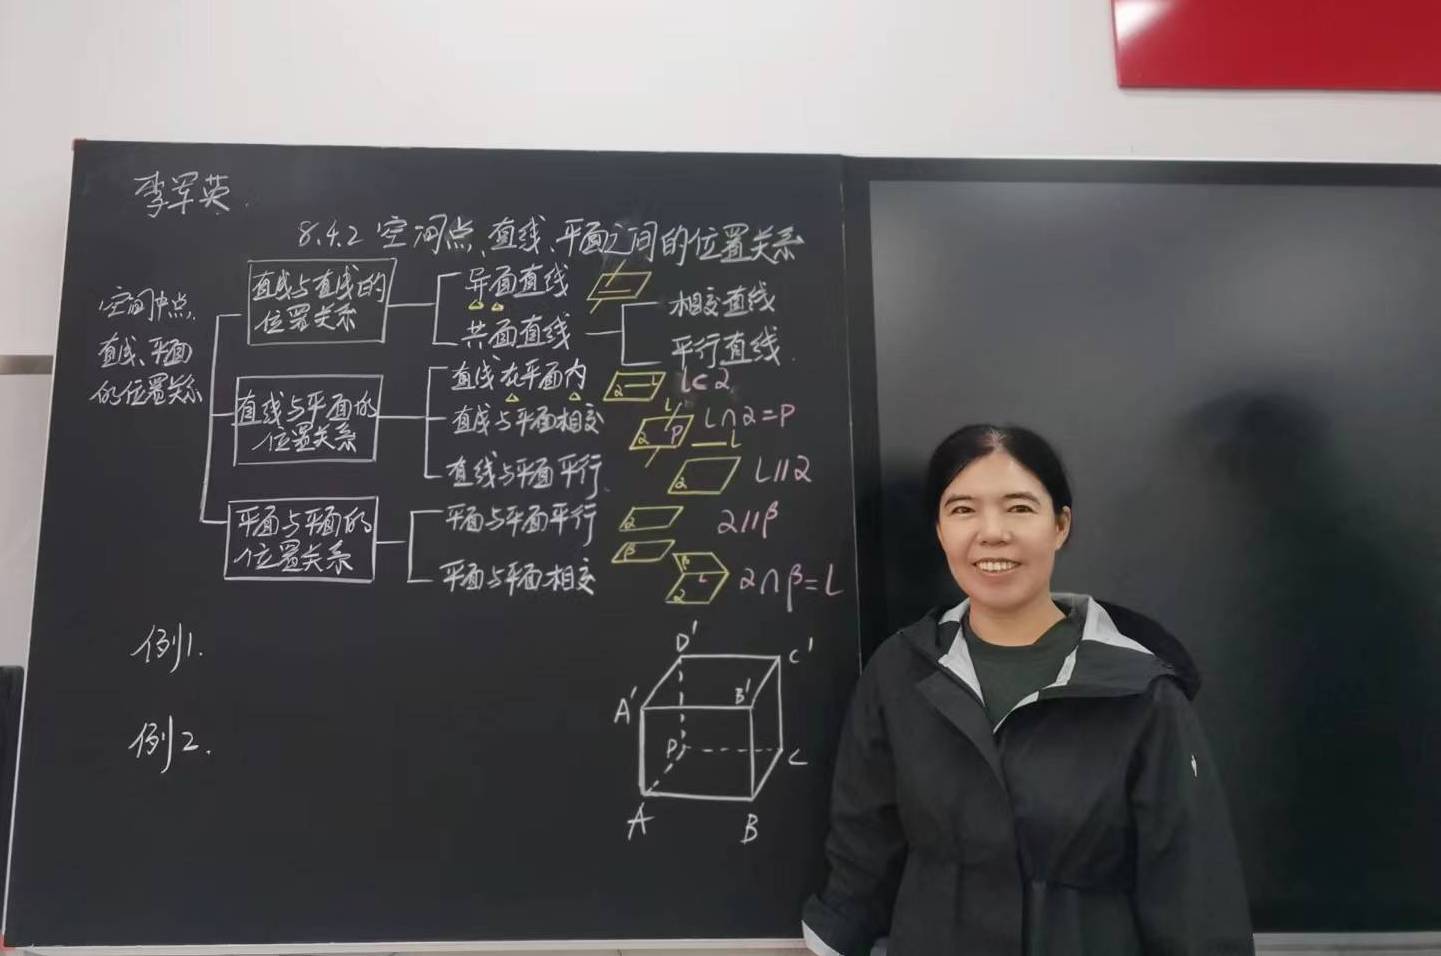 李军英.
8.4.2 空间点、直线、平面之间的位置关系
空间中点、
直线、平面
的位置关系
直线与直线的
位置关系
异面直线
共面直线
相交直线
平行直线.
直线与平面的
位置关系
直线在平面内
α L
L⊂α
直线与平面相交
L
α P
L∩α=P
直线与平面平行.
L
α
L∥α
平面与平面的
位置关系
平面与平面平行
α
β
α∥β
平面与平面相交
β
L
α
α∩β=L
例1.
例2.
D'
C'
A'
B'
D
C
A
B